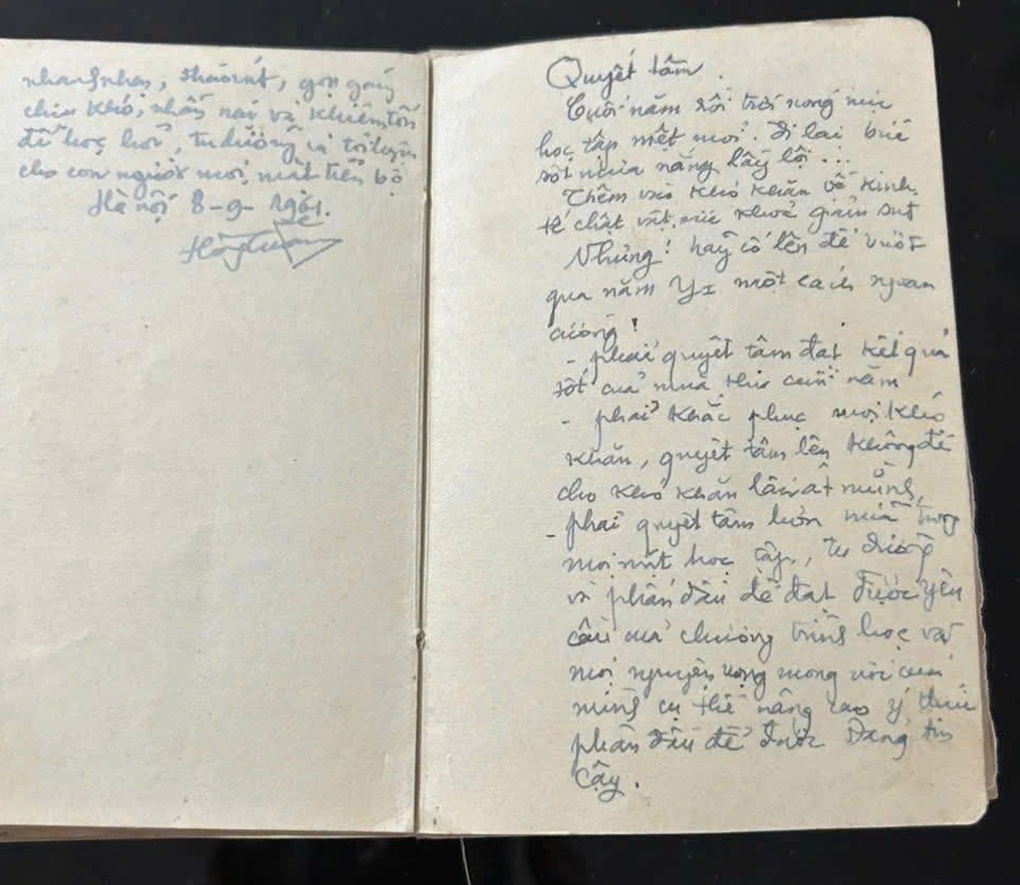 nhanh nhẹn, tháo vát, gọn gàng
chịu khó, nhẫn nại và khiêm tốn
để học hỏi, tu dưỡng và tôi luyện
cho con người mới, mặt tiến bộ
Hà nội 8-9-1961.
Quyết tâm.
Cuối năm rồi trời nóng nực
học tập mệt mỏi. Đi lại buổi
sốt nhựa nắng lầy lội...
Thêm vào khó khăn về kinh
tế chật vật, sức khoẻ giảm sút
Nhưng! hãy cố lên để vượt
qua năm Y2 một cách ngoan
cường!
- phải quyết tâm đạt kết quả
tốt của mùa thi cuối năm
- phải khắc phục mọi khó
khăn, quyết tâm lên không để
cho khó khăn lấn át mình,
- phải quyết tâm hơn nữa trong
mọi mặt học tập, tu dưỡng
và phấn đấu để đạt được yêu
cầu của chương trình học và
mọi nguyện vọng mong ước của
mình cụ thể nâng cao ý thức
phấn đấu để được Đảng tin
cậy.